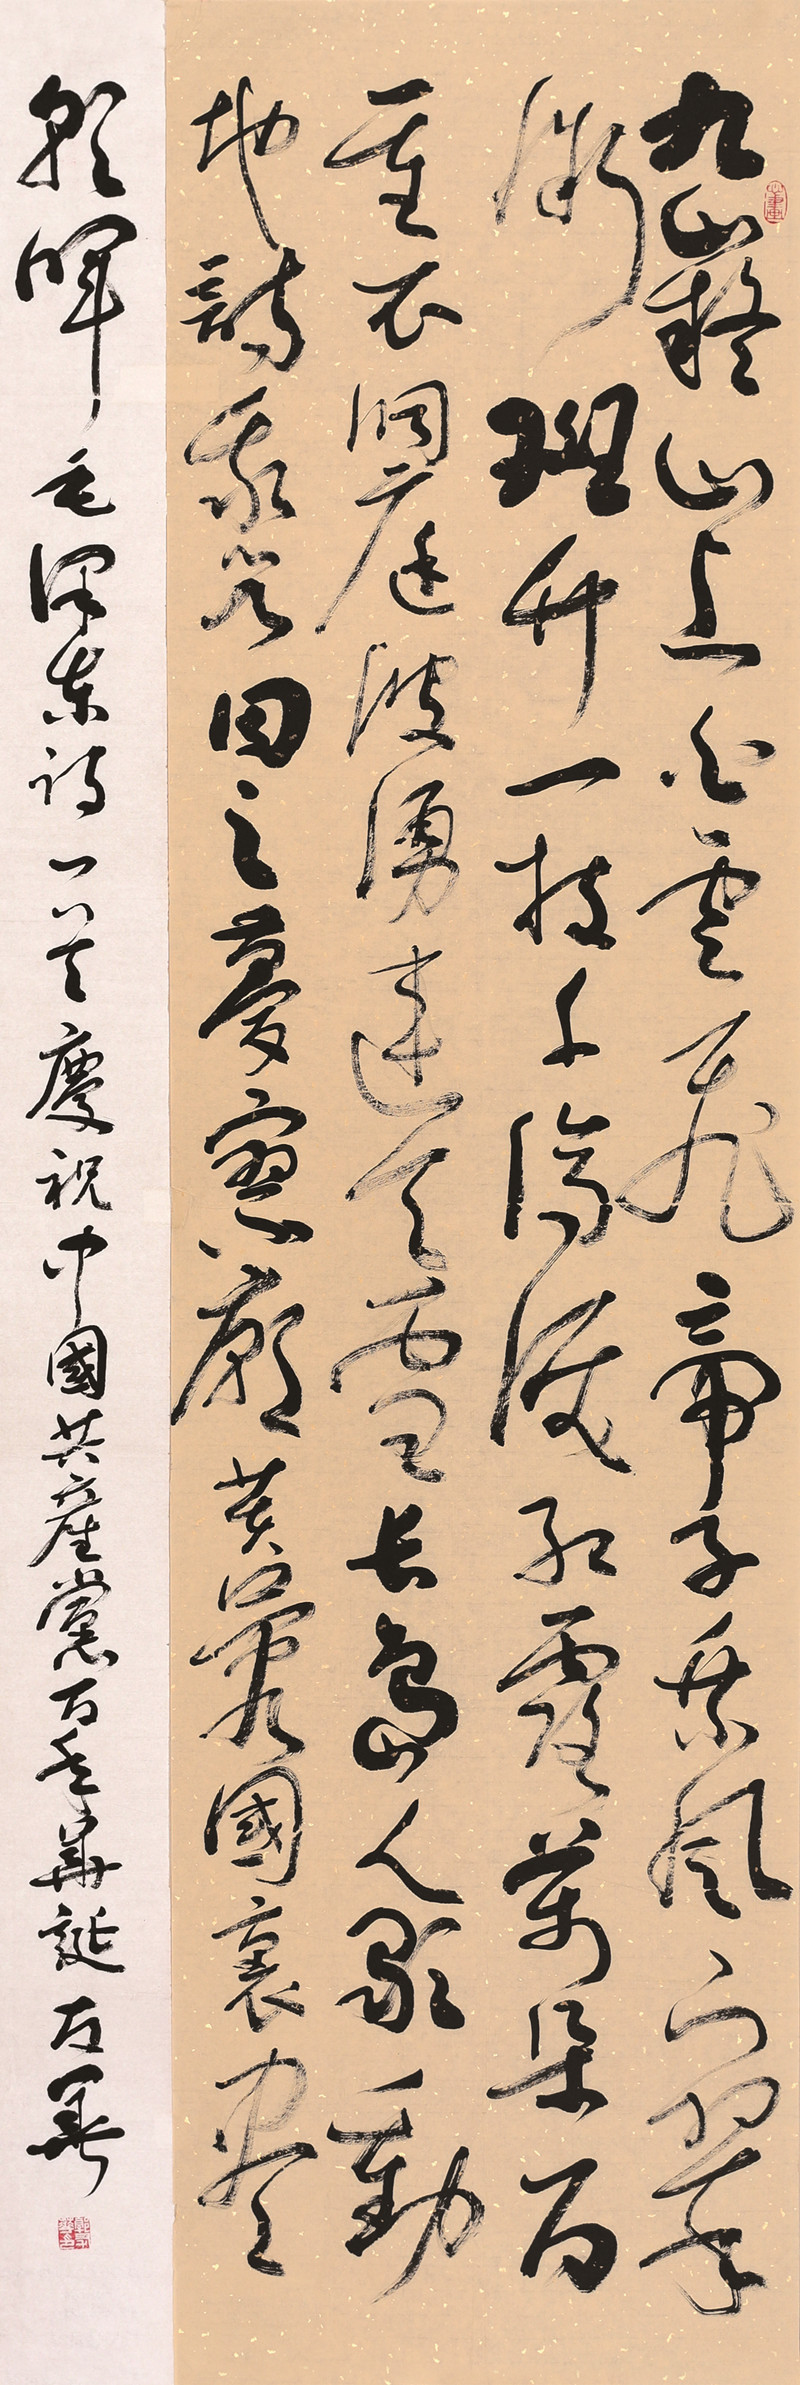 九嶷山上白雲飛帝子乘風下翠
微斑竹一枝千滴淚紅霞萬朵百
重衣洞庭波湧連天雪長島人歌動
地詩我欲因之夢寥廓芙蓉國裏盡
朝暉 毛澤東詩一首慶祝中國共產黨百年華誕 友